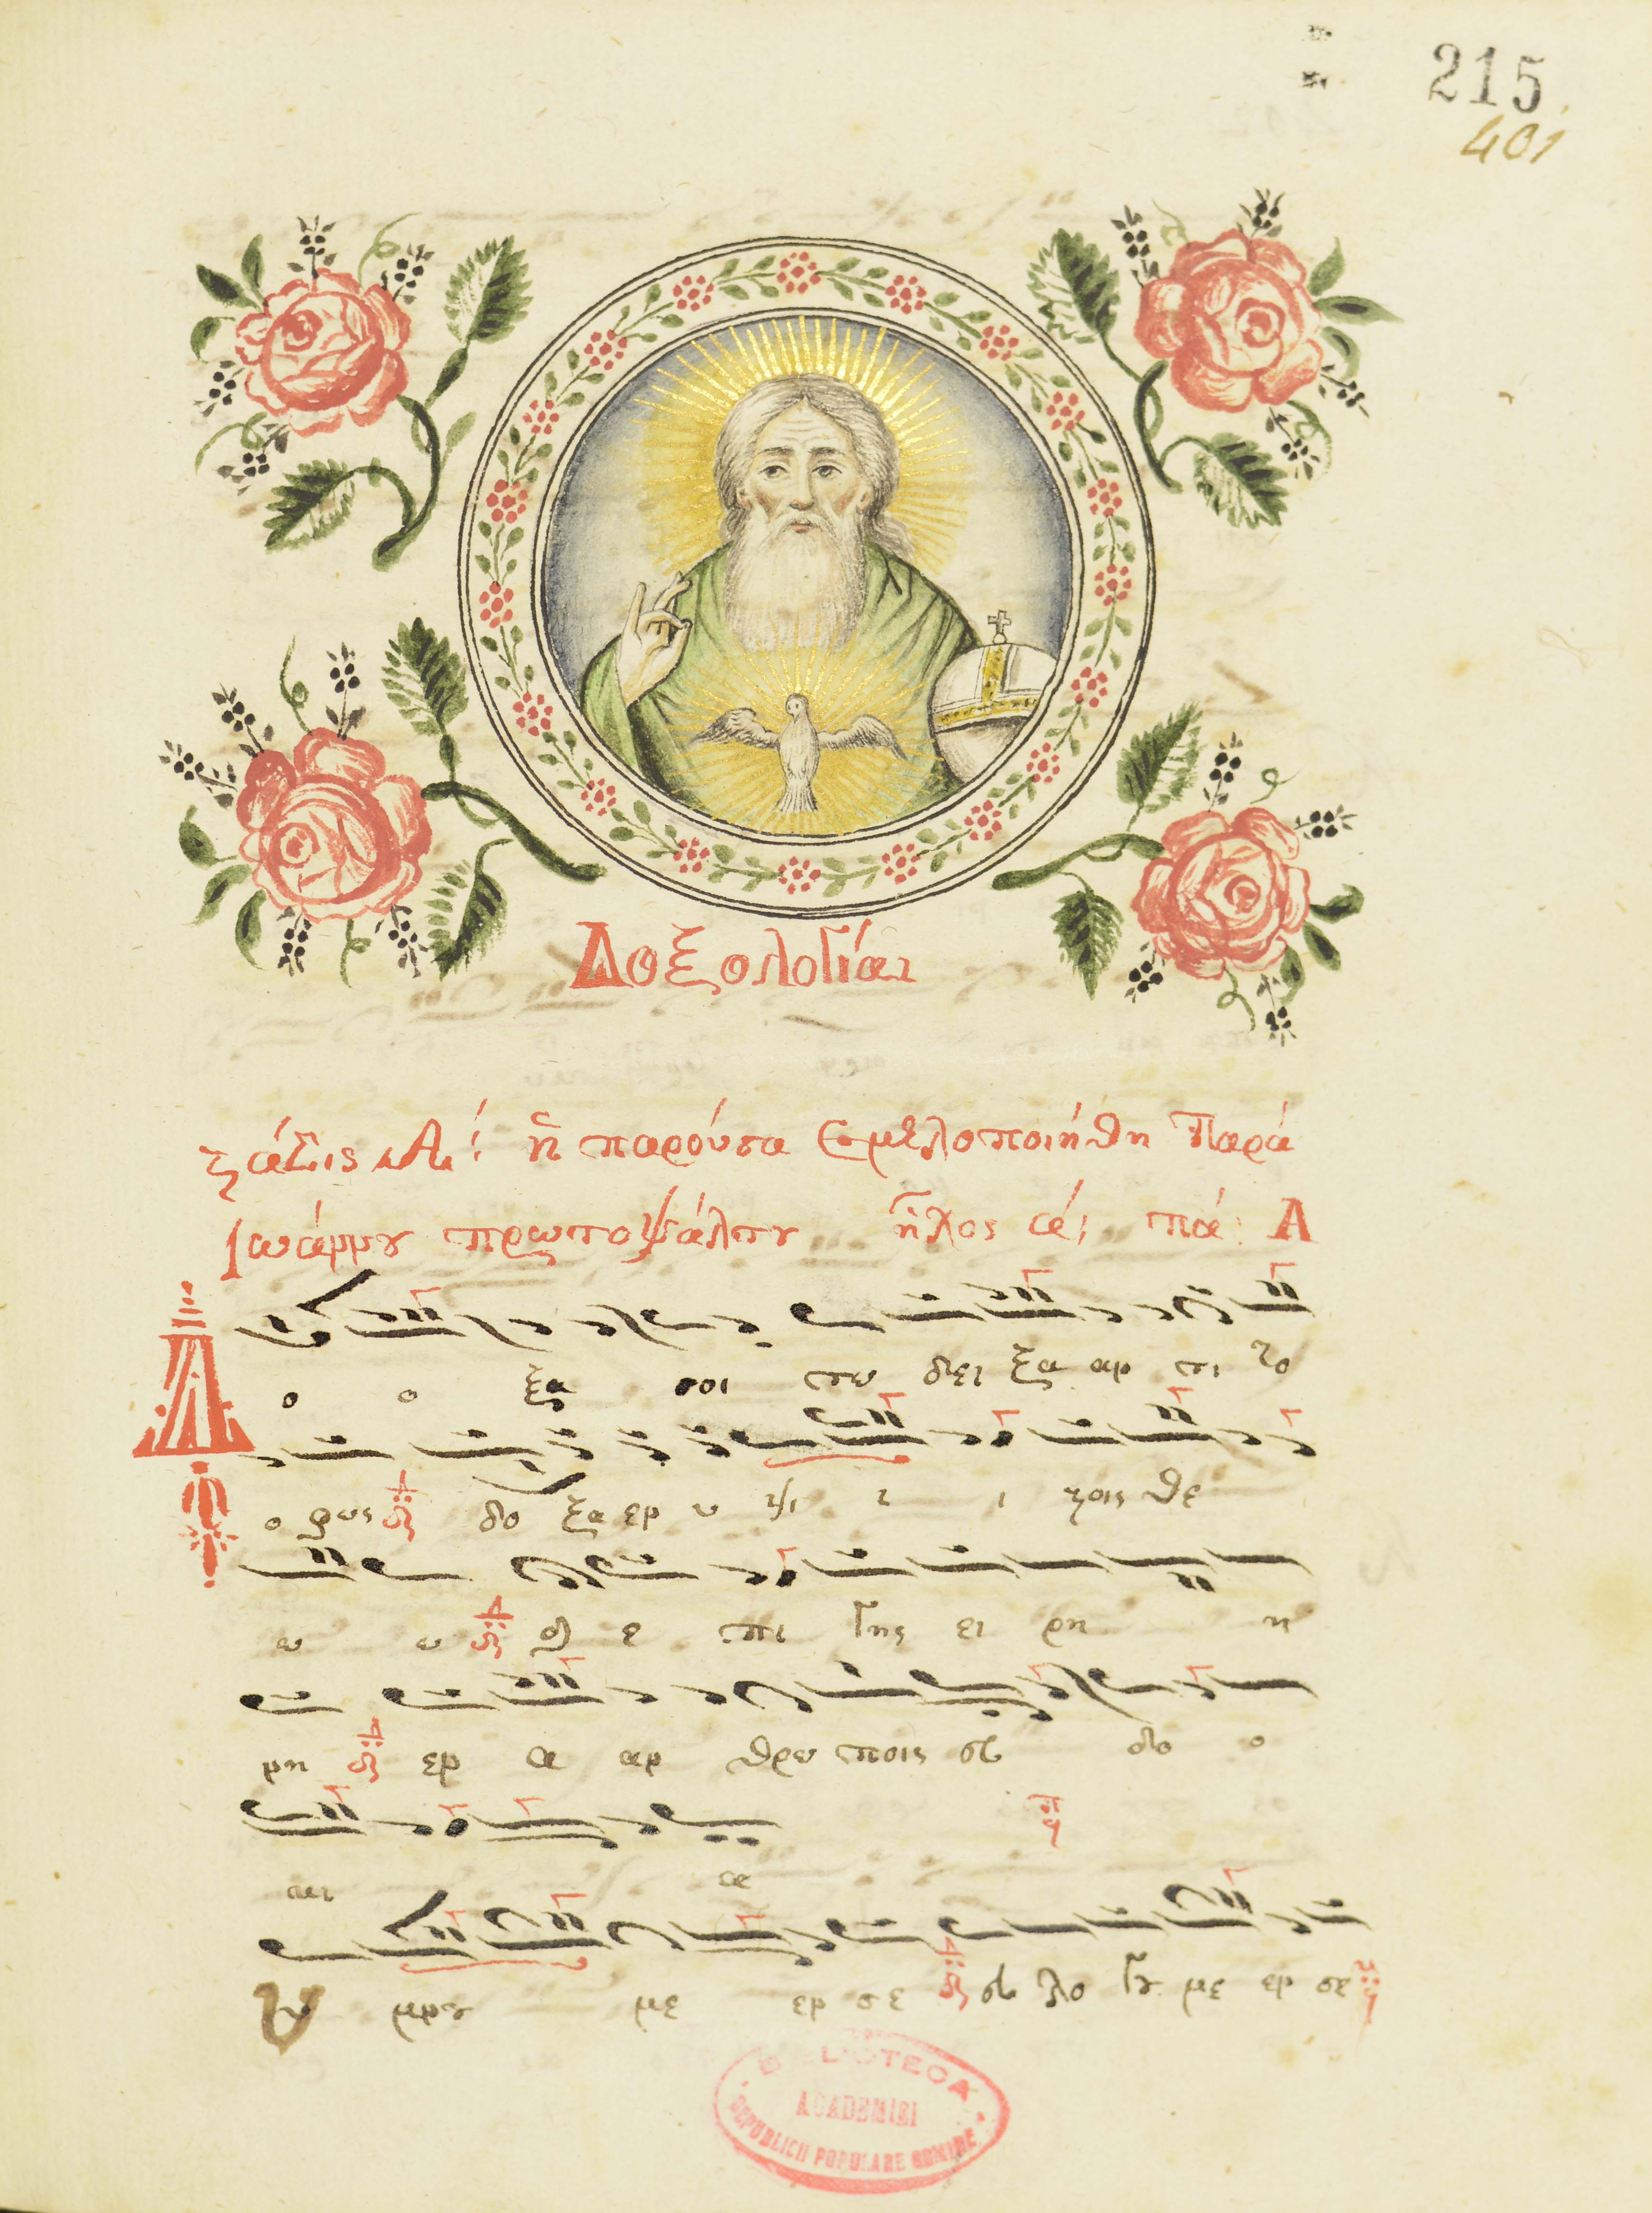 215
401
Δοξολογίαι
τάξις Α: ἡ παροῦσα ἐμελοποιήθη παρὰ
Ἰωάννου πρωτοψάλτου ἦχος ά: πά: Δ
ο ο ξα σοι τω δει ξα αν τι το
ο φως δο ξα εν υ ψι ι ι τοις θε
ω ω ϗ ε πι γης ει ρη η
ρη εν α αν θρω ποις ευ δο ο
κι α
Υ μνου με εν σε ευ λο γου με εν σε
BIBLIOTECA
ACADEMIEI
REPUBLICII POPULARE ROMINE